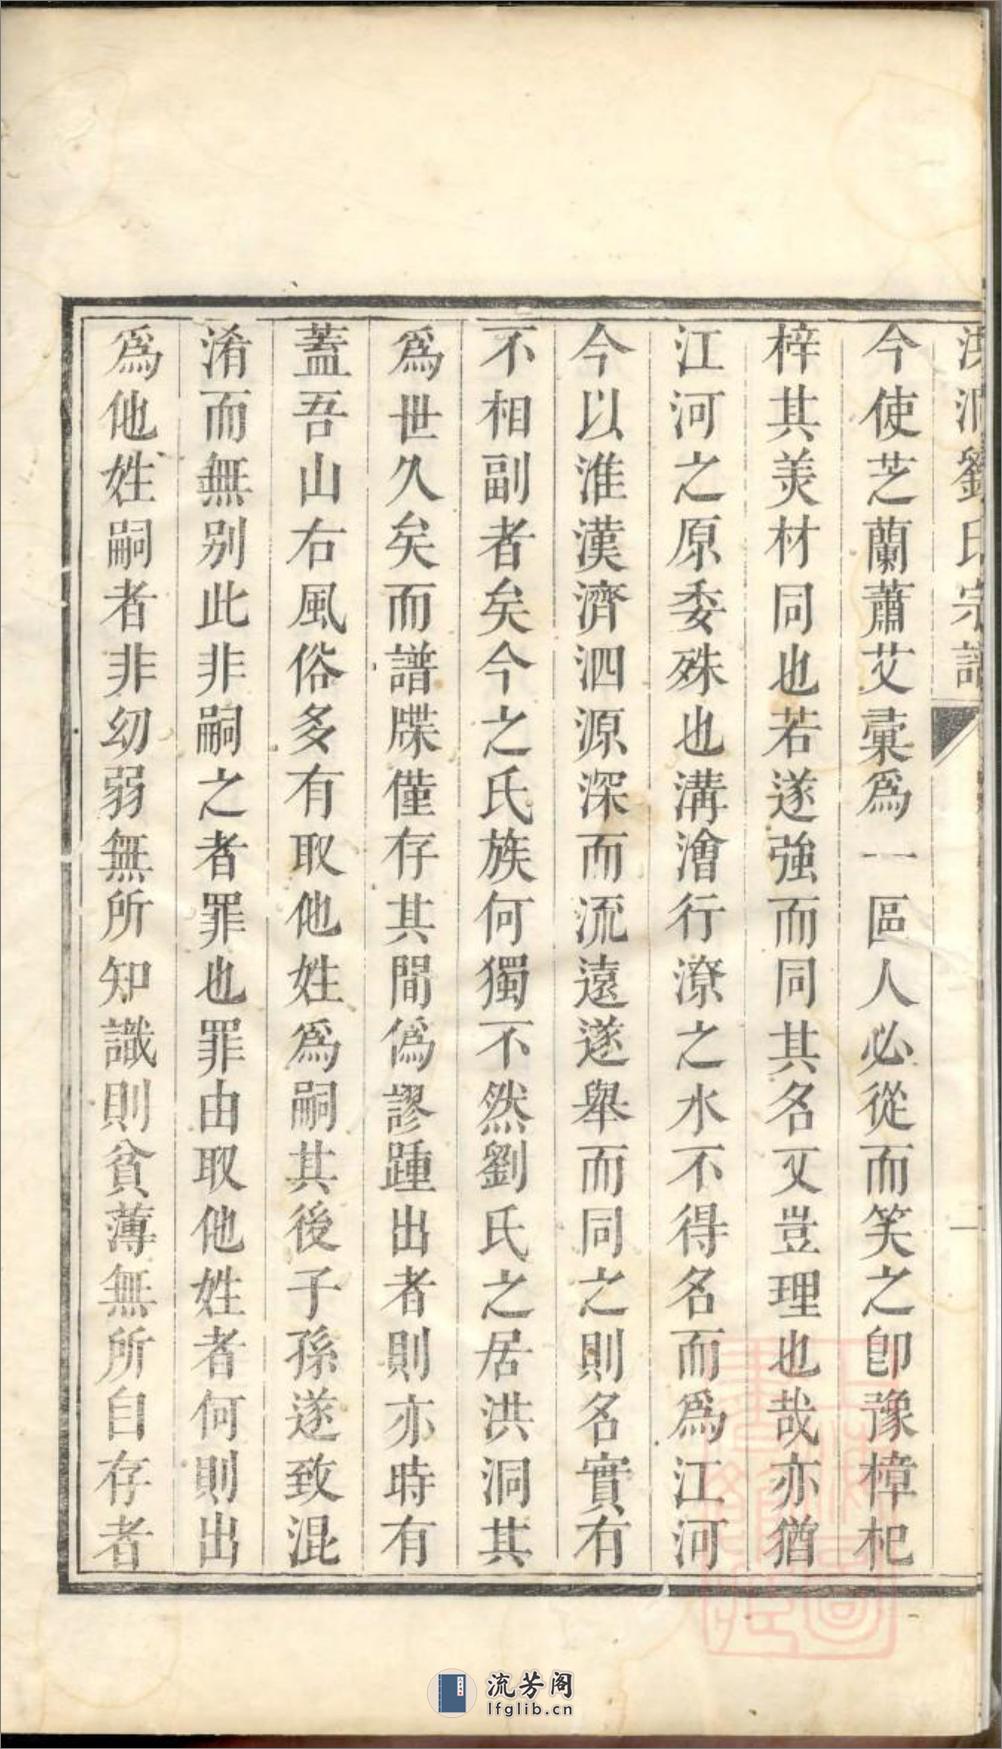 洪洞劉氏宗譜
一
今使芝蘭蕭艾彚爲一區人必從而笑之卽豫樟杞
梓其美材同也若遂強而同其名又豈理也哉亦猶
江河之原委殊也溝澮行潦之水不得名而爲江河
今以淮漢濟泗源深而流遠遂舉而同之則名實有
不相副者矣今之氏族何獨不然劉氏之居洪洞其
爲世久矣而譜牒僅存其間僞謬踵出者則亦時有
蓋吾山右風俗多有取他姓爲嗣其後子孫遂致混
淆而無别此非嗣之者罪也罪由取他姓者何則出
爲他姓嗣者非幼弱無所知識則貧薄無所自存者
流芳阁
lfglib.cn